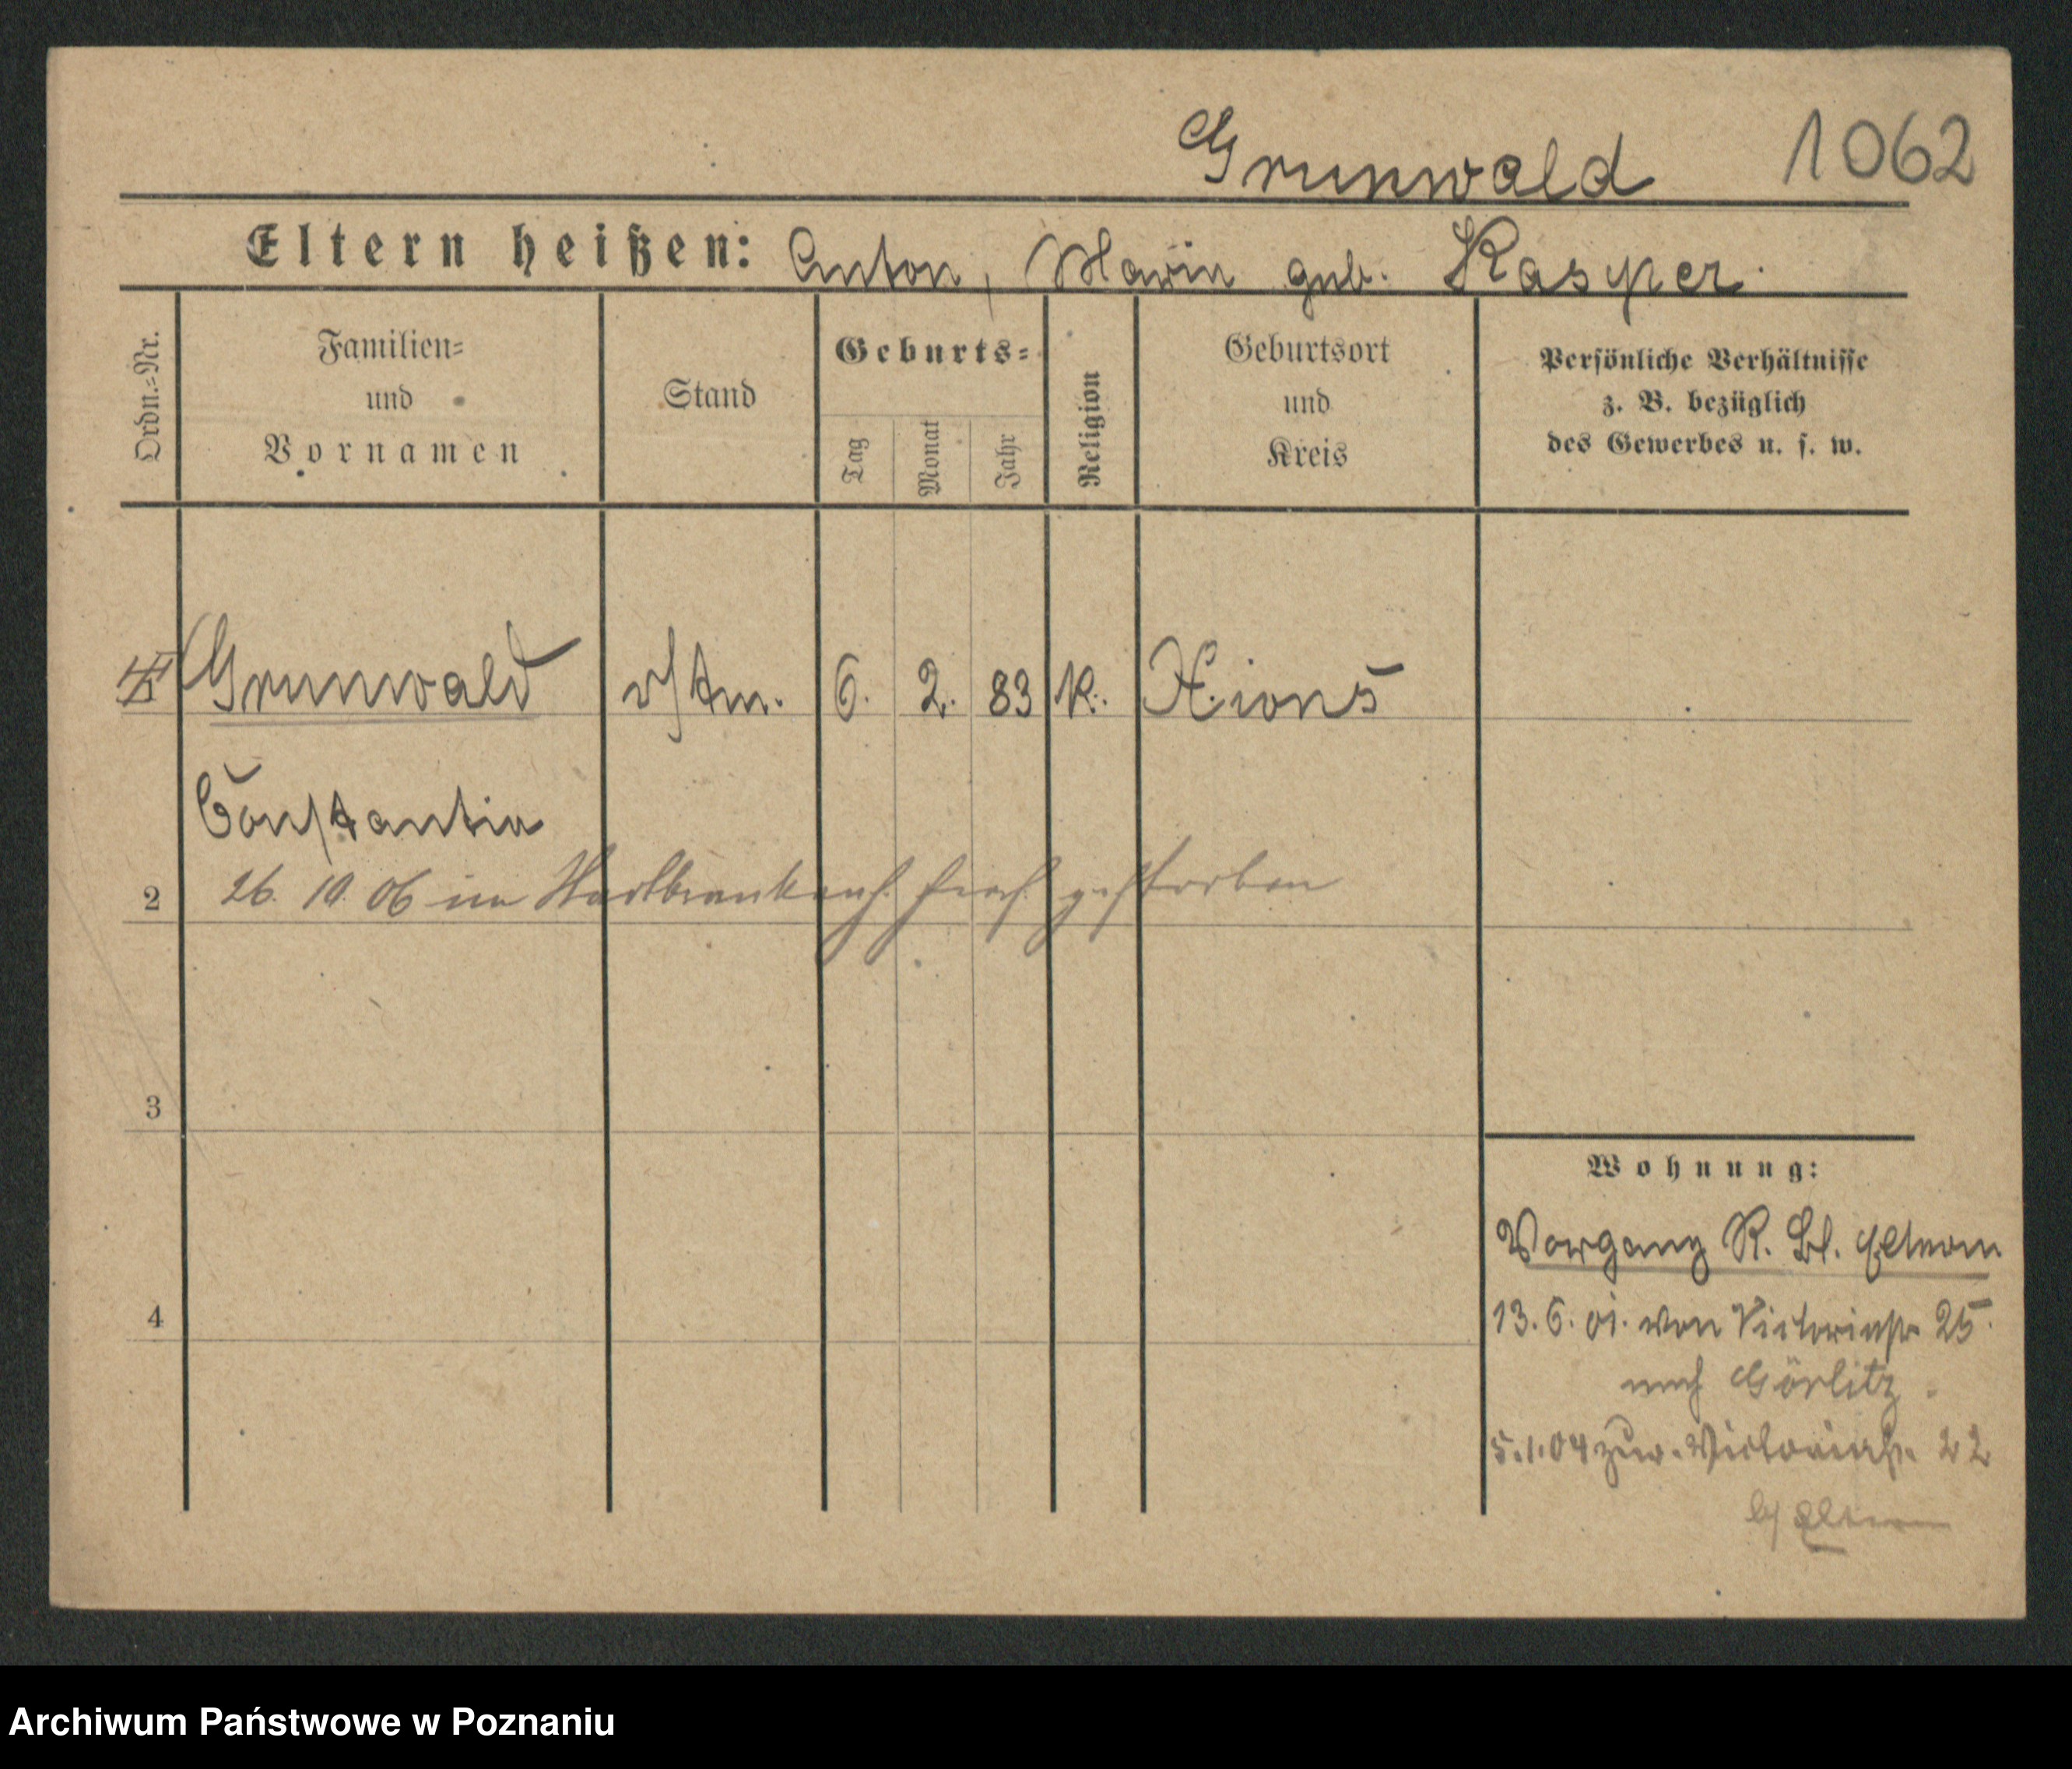 Grunwald 1062
Eltern heißen: Anton, Marie geb. Kasper.
Ordn.-Nr.
Familien-
und
Vornamen
Stand
Geburts-
Tag
Monat
Jahr
Religion
Geburtsort
und
Kreis
Persönliche Verhältnisse
z. B. bezüglich
des Gewerbes u. s. w.
Grunwald 6. 2. 83 k. Xions
Constantia
2 26. 10. 06 im Stadtkrankenh. hier gestorben
3
Wohnung:
Vorgang R. Bl. Eltern
4
13. 6. 01. von Victoriastr 25.
nach Görlitz
5.1.04 zur. Victoriastr. 22
b/ Eltern
Archiwum Państwowe w Poznaniu